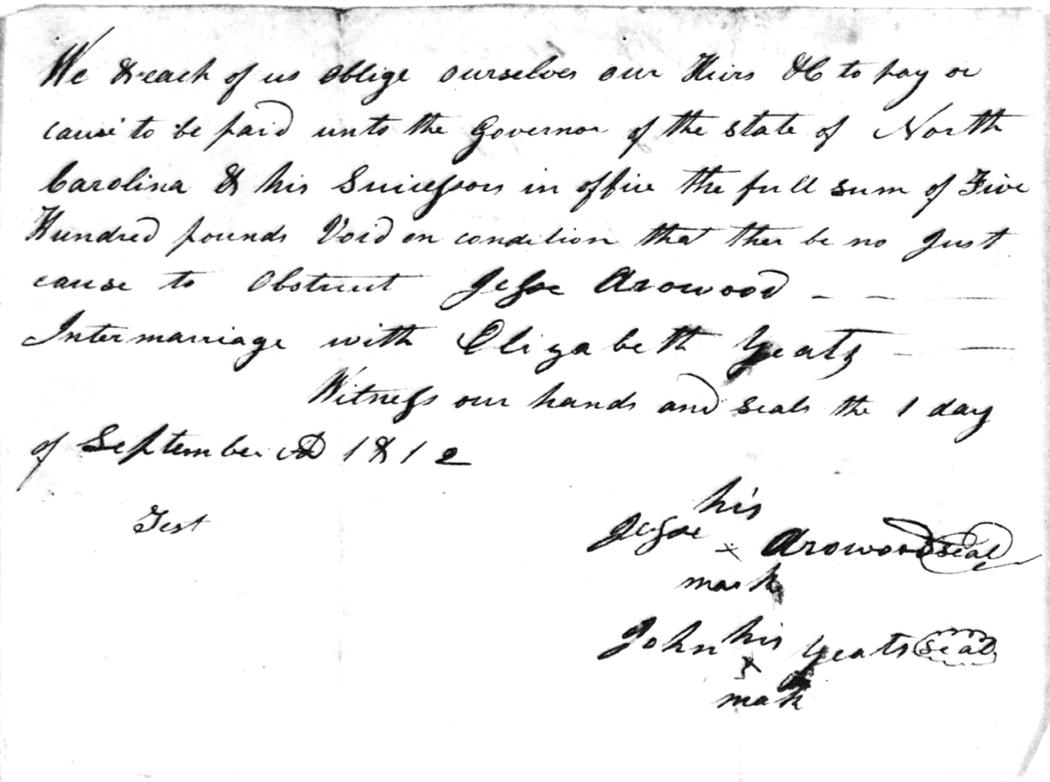 We & each of us oblige ourselves our Heirs &C to pay or
cause to be paid unto the Governor of the state of North
Carolina & his Successors in office the full sum of Five
Hundred pounds Void on condition that ther be no Just
cause to Obstruct Jesse Arowood
Intermarriage with Elizabeth Yeats
Witness our hands and seals the 1 day
of September AD 1812
Test
his
Jesse x Arowood seal
mark
his
John x Yeats seal
mark